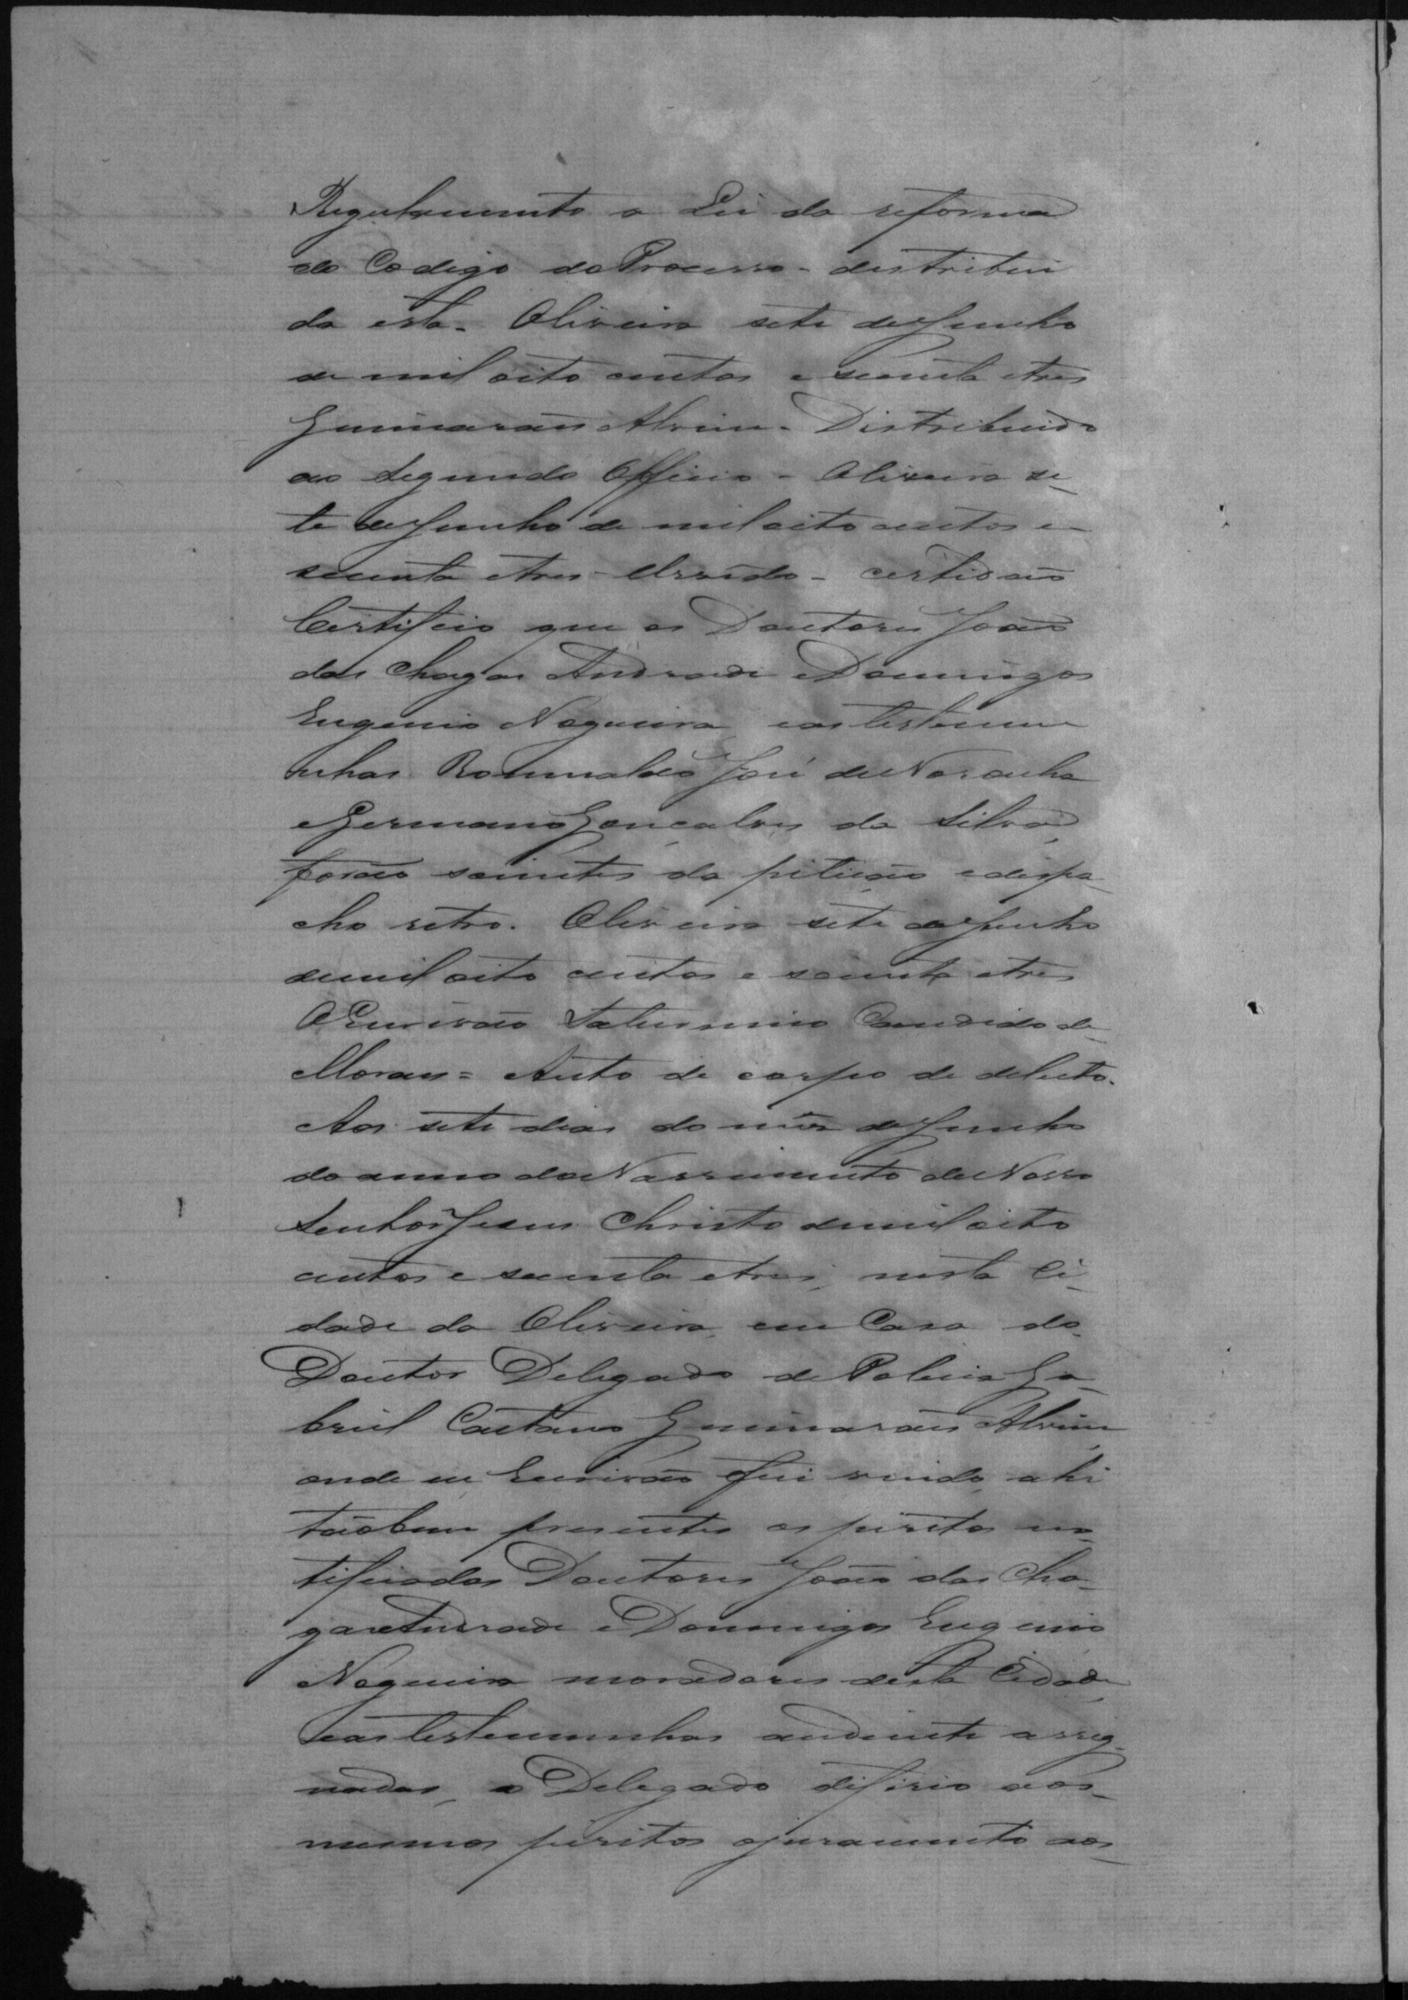 Regulamento a Lei da reforma
do Codigo do Processo - destribui
da esta. Oliveira sete de Junho
de mil oito centos e secenta e tres
Guimarães Alvim. Distribuido
ao Segundo Officio - Oliveira se-
te de Junho de mil oito centos e
secenta e tres - - certidão
Certifico que os Doutores João
das Chagas Andrade e Domingos
Eugenio Nogueira, e as testemu
nhas Romualdo José de Noronha
e Germano Gonçalves da Silva,
forão scientes da petição e despa-
cho retro. Oliveira sete de Junho
de mil oito centos e secenta e tres
O Escrivão Saturnino Candido de
Moraes = Auto de corpo de delicto.
Aos sete dias do mês de Junho
do anno do Nascimento de Nosso
Senhor Jesus Christo de mil oito
centos e secenta e tres, nesta Ci-
dade da Oliveira, em Casa do
Doutor Delegado de Policia Ga-
briel Caetano Guimarães Alvim
onde eu Escrivão fui vindo, ahi
tãobem presentes os peritos no
tificados Doutores João das Cha-
gas Andrade e Domingos Eugenio
Nogueira moradores desta Cidade,
e as testemunhas audiente assig-
nadas, o Delegado difirio aos
mesmos peritos o juramento aos